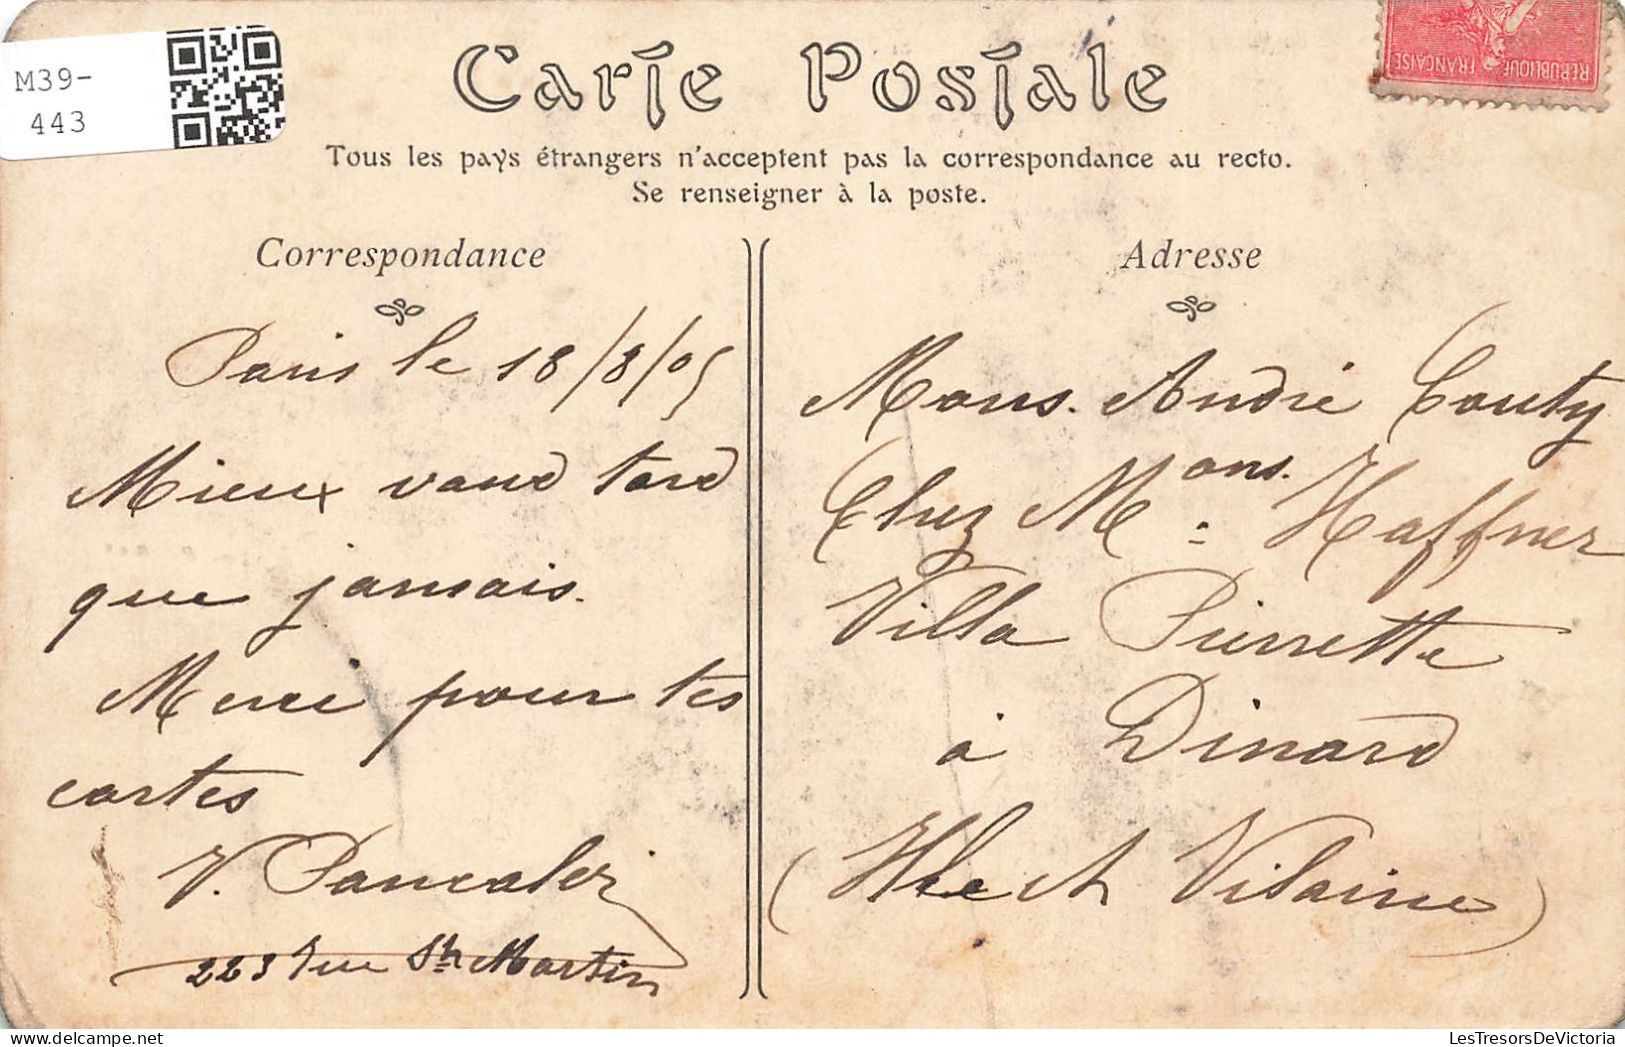 M39-
443
Carte Postale
Tous les pays étrangers n'acceptent pas la correspondance au recto.
Se renseigner à la poste.
Correspondance
Paris le 18/8/05
Mieux vaud tard
que jamais.
Merci pour tes
cartes
V. Pancaleri
223 rue St Martin
Adresse
Mons. André Couty
Chez Mons. Haffner
Villa Pierrette
à Dinard
(Ille et Vilaine)
REPUBLIQUE FRANÇAISE
LesTresorsDeVictoria